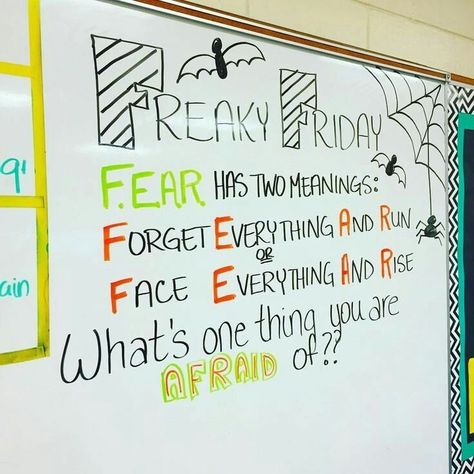 FREAKY FRIDAY
F.E.A.R. HAS TWO MEANINGS:
FORGET EVERYTHING AND RUN
OR
FACE EVERYTHING AND RISE
What's one thing you are
AFRAID of??
9'
ain